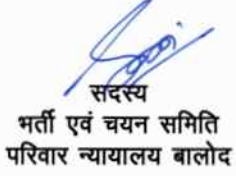 सदस्य
भर्ती एवं चयन समिति
परिवार न्यायालय बालोद